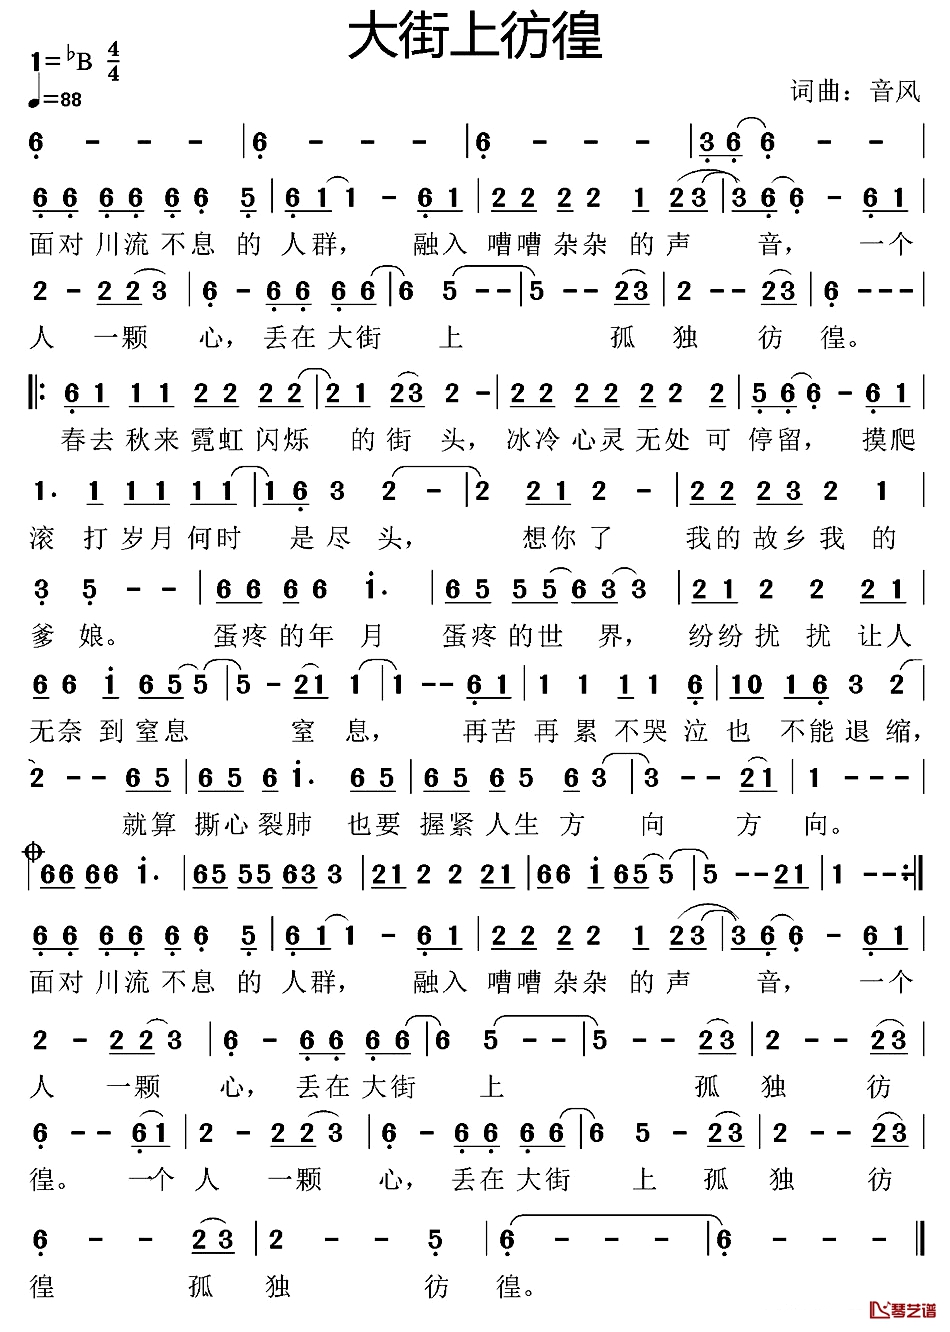 大街上彷徨
1=♭B 4/4
♩=88
词曲：音风
6 - - - | 6 - - - | 6 - - - | 3 6 6 - - |
6 6 6 6 6 6 5 | 6 1 1 - 6 1 | 2 2 2 2 1 2 3 | 3 6 6 - 6 1 |
面对 川流 不息 的 人群， 融入 嘈嘈 杂杂 的 声 音， 一个
2 - 2 2 3 | 6 - 6 6 6 6 | 6 5 - - | 5 - - 2 3 | 2 - - 2 3 | 6 - - - |
人 一颗 心， 丢在 大街 上 孤 独 彷 徨。
‖: 6 1 1 1 2 2 2 2 | 2 1 2 3 2 - | 2 2 2 2 2 2 2 | 5 6 6 - 6 1 |
春去 秋来 霓虹 闪烁 的 街 头， 冰冷 心灵 无处 可 停留， 摸爬
1. 1 1 1 1 1 | 1 6 3 2 - | 2 2 1 2 - | 2 2 2 3 2 1 |
滚 打 岁月 何时 是 尽 头， 想你 了 我的 故乡 我 的
3 5 - - | 6 6 6 6 i. | 6 5 5 5 6 3 3 | 2 1 2 2 2 1 |
爹 娘。 蛋疼 的年 月 蛋疼 的世 界， 纷纷 扰 扰 让人
6 6 i 6 5 5 | 5 - 2 1 1 | 1 - - 6 1 | 1 1 1 1 6 | 1 0 1 6 3 2 |
无奈 到 窒息 窒 息， 再苦 再 累 不哭 泣 也 不能 退 缩，
2 - - 6 5 | 6 5 6 i. | 6 5 6 5 6 3 | 3 - - 2 1 | 1 - - - |
就算 撕心 裂肺 也要 握紧 人生 方 向 方 向。
6 6 6 6 i. | 6 5 5 5 6 3 3 | 2 1 2 2 2 1 | 6 6 i 6 5 5 | 5 - - 2 1 | 1 - - - :‖
6 6 6 6 6 6 5 | 6 1 1 - 6 1 | 2 2 2 2 1 2 3 | 3 6 6 - 6 1 |
面对 川流 不息 的 人群， 融入 嘈嘈 杂杂 的 声 音， 一个
2 - 2 2 3 | 6 - 6 6 6 6 | 6 5 - - | 5 - - 2 3 | 2 - - 2 3 |
人 一颗 心， 丢在 大街 上 孤 独 彷
6 - - 6 1 | 2 - 2 2 3 | 6 - 6 6 6 6 | 6 5 - 2 3 | 2 - - 2 3 |
徨。 一个 人 一颗 心， 丢在 大街 上 孤 独 彷
6 - - 2 3 | 2 - - 5 | 6 - - - | 6 - - - ‖
徨 孤 独 彷 徨。
琴艺谱